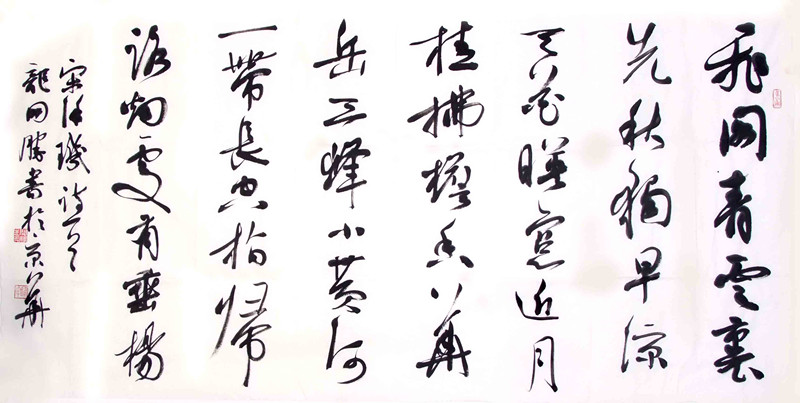 飛閣青雲裏
先秋獨早涼
天花暎窗近月
桂拂檐香華
岳三峰小黃河
一帶長空指歸
路烟處有垂楊
宋 璣詩一首
龍国勝書於京華